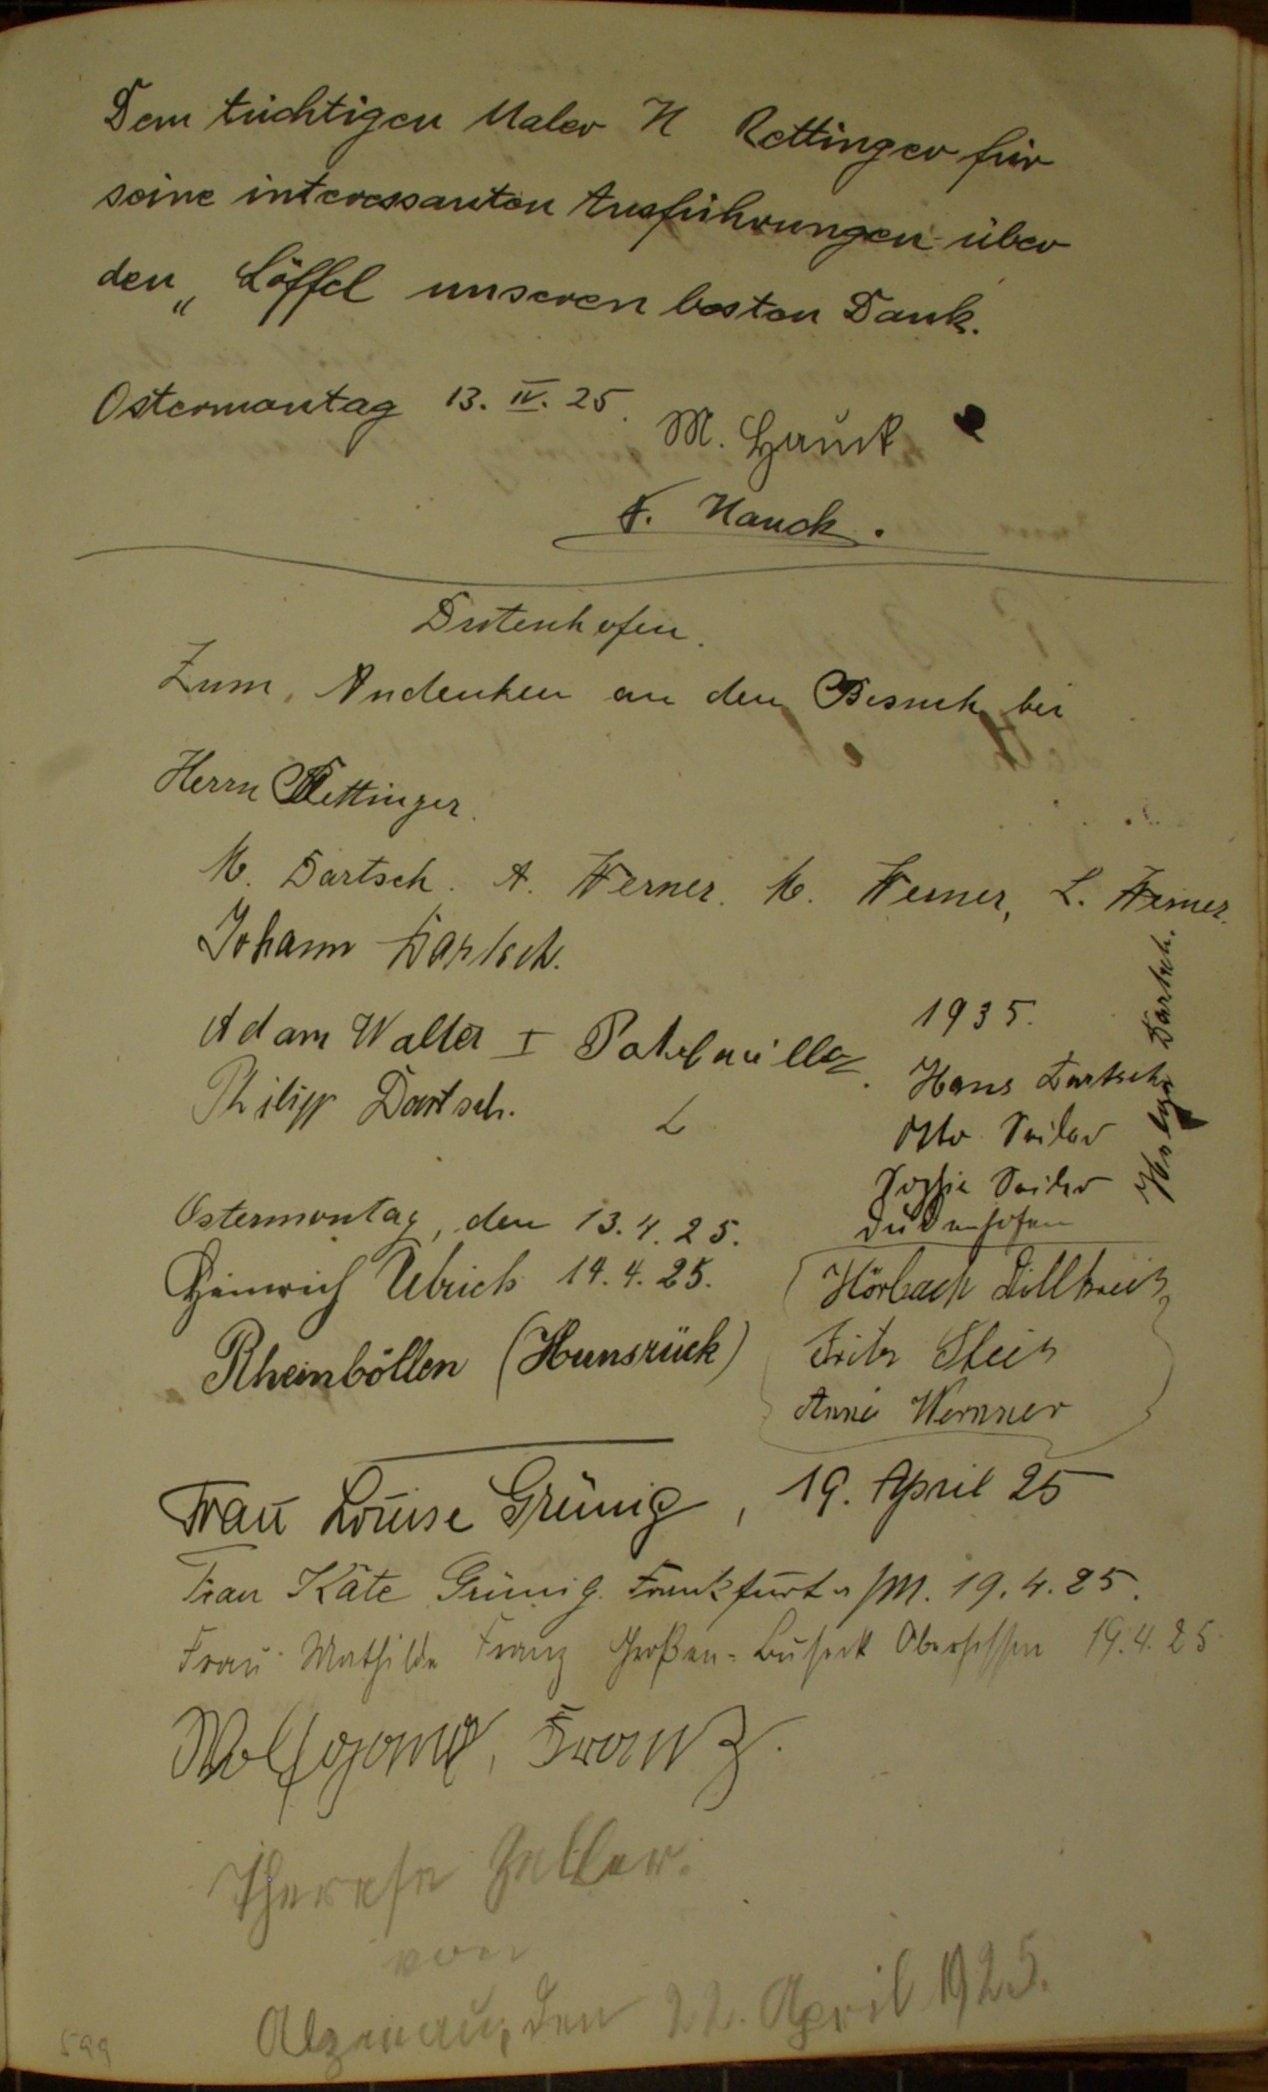 Dem tüchtigen Maler H Rettinger für
seine interessanten Ausführungen über
den „ Löffel unseren besten Dank.
Ostermontag 13. IV. 25.
M. Hauck
F. Hauck.
Zum Andenken an den Besuch bei
Herrn Rettinger.
M. Dartsch. A. Werner. M. Werner, L. Werner.
Johann Dartsch.
Adam Walter I
Philipp Dartsch.
1935.
Hans Dartsch
Otto Seiler
Sophie Seiler
Dudenhofen
Dartsch.
Ostermontag, den 13.4.25.
Heinrich Ulrich 14.4.25.
Rheinböllen (Hunsrück)
Hörbach Dillkreis
Fritz
Anna Wernner
Frau Louise Grünig, 19. April 25
Frau Käte Grünig. Frankfurt a/M. 19.4.25.
Frau Mathilde Franz Großen-Buseck Oberhessen 19.4.25
Wolfgang, Franz.
Therese Zeller.
von
Alzenau, den 22. April 1925.
599